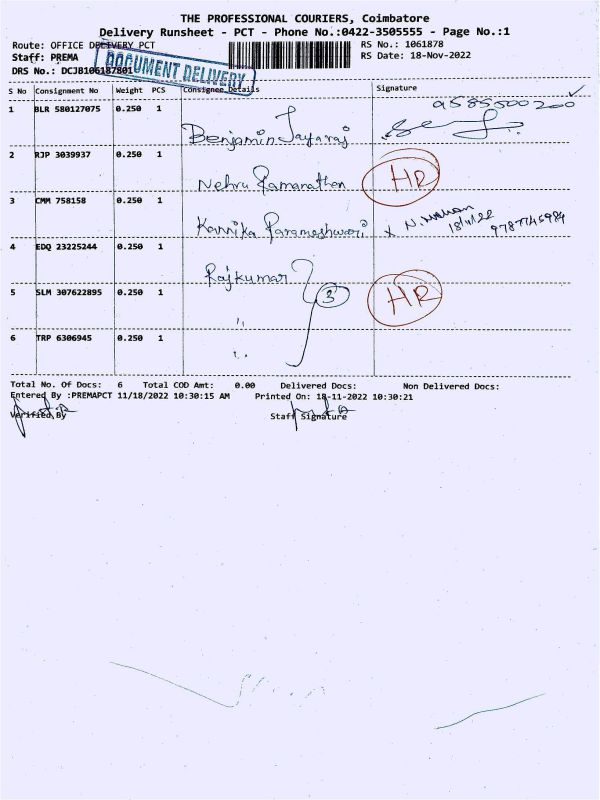 THE PROFESSIONAL COURIERS, Coimbatore
Delivery Runsheet - PCT - Phone No.:0422-3505555 - Page No.:1
Route: OFFICE DELIVERY PCT
RS No.: 1061878
Staff: PREMA
RS Date: 18-Nov-2022
DRS No.: DCJB106187801
DOCUMENT DELIVERY
S No Consignment No Weight PCS Consignee Details Signature
9585500200
1 BLR 580127075 0.250 1
Benjamin Jayaraj
2 RJP 3039937 0.250 1
Nehru Ramanathan HR
3 CMM 758158 0.250 1
Karrika Parameshwari x N. 18/11/22 9787745984
4 EDQ 23225244 0.250 1
Rajkumar
5 SLM 307622895 0.250 1 3 HR
"
6 TRP 6306945 0.250 1
"
Total No. Of Docs: 6 Total COD Amt: 0.00 Delivered Docs: Non Delivered Docs:
Entered By :PREMAPCT 11/18/2022 10:30:15 AM Printed On: 18-11-2022 10:30:21
Verified By Staff Signature